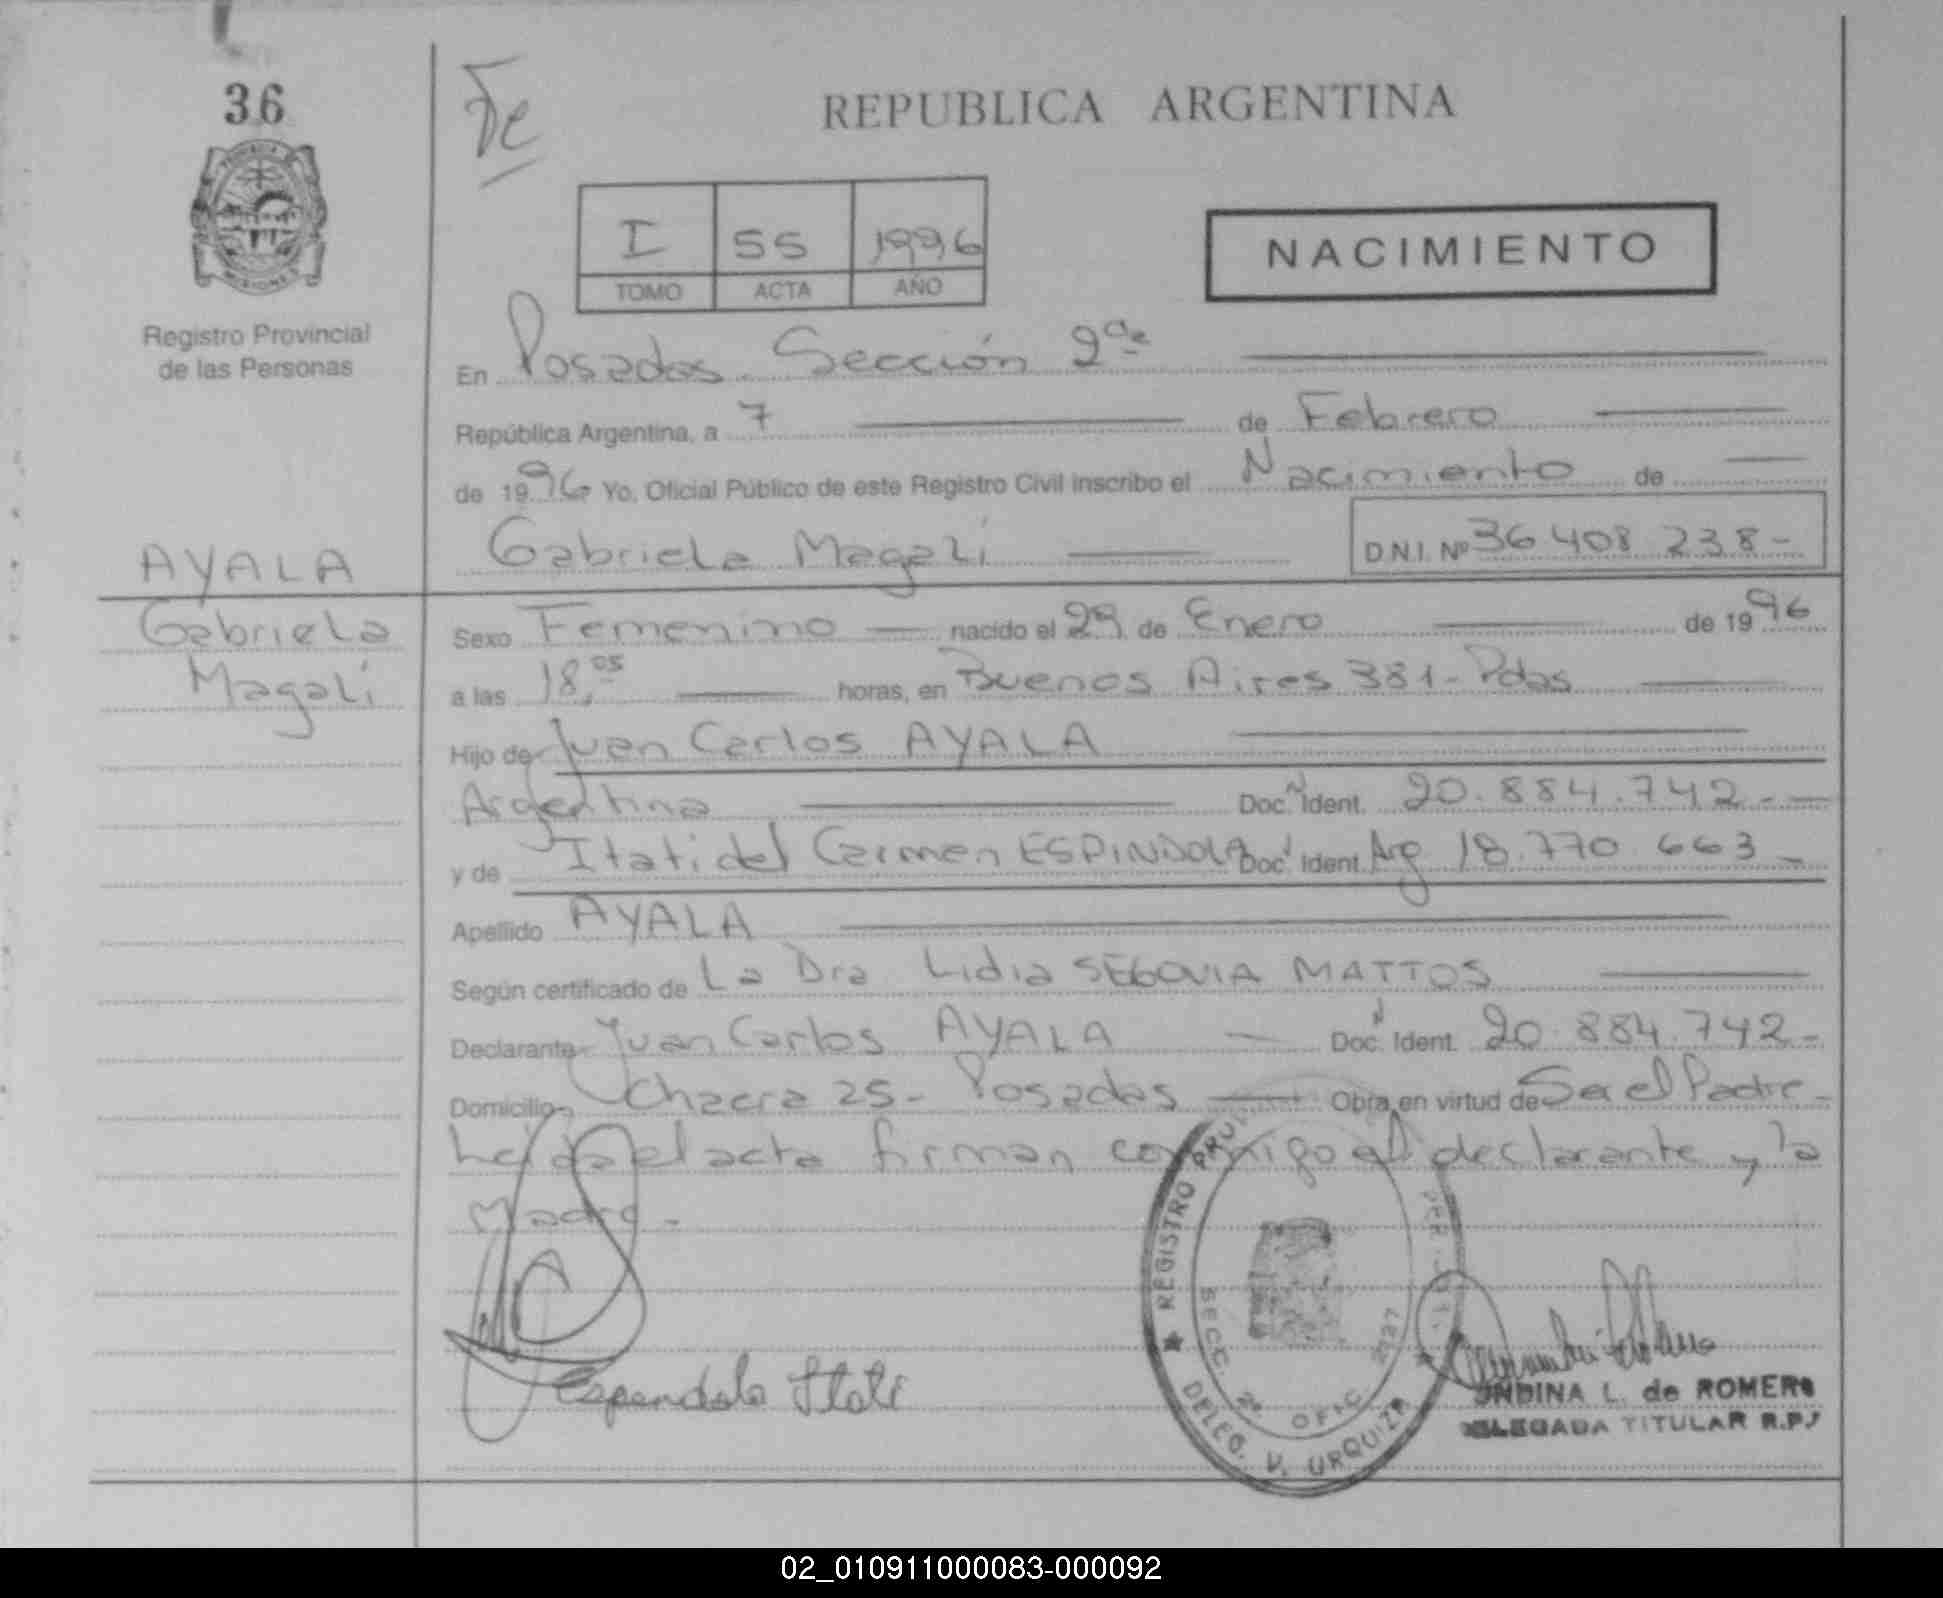 36
Fe
REPUBLICA ARGENTINA
PROVINCIA DE MISIONES
I 55 1996
TOMO ACTA AÑO
NACIMIENTO
Registro Provincial
de las Personas
En Posadas. Sección 2da
República Argentina, a 7 de Febrero
de 1996 Yo, Oficial Público de este Registro Civil inscribo el Nacimiento de
Gabriela Magali D.N.I. Nº 36 408 238-
AYALA
Gabriela
Magali
Sexo Femenino nacido el 29 de Enero de 1996
a las 18,05 horas, en Buenos Aires 381- Pdas
Hijo de Juan Carlos AYALA
Argentina Doc. Ident. 20.884.742-
y de Itati del Carmen ESPINDOLA Doc. Ident. Arg 18.770.663-
Apellido AYALA
Según certificado de La Dra Lidia SEGOVIA MATTOS
Declarante Juan Carlos AYALA Doc. Ident. 20.884.742-
Domicilio Chacra 25- Posadas Obra en virtud de Ser el Padre-
Leida el acta firman conmigo el declarante y la
Madre-
Espendola Itati
REGISTRO PROV. PER.
SECC. 2ª OFIC.
DELEG. V. URQUIZA
ONDINA L. de ROMERO
DELEGADA TITULAR R.P.
02_010911000083-000092